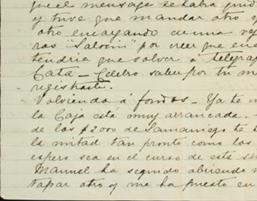 que el mensaje se había ido
y tuve que mandar otro y
otro encargando de una
ras "Salvin" por creer que en
tendria que volver a telegra
Cata - Celebro saber por tu m
registraste.
Volviendo á fondos - Ya te
la Caja está muy arrancada.
de los $2000 de Samaniego te
la mitad tan pronto como los
espero sea en el curso de esta se
Manuel ha seguido abriendo
tapar otro y me ha puesto en